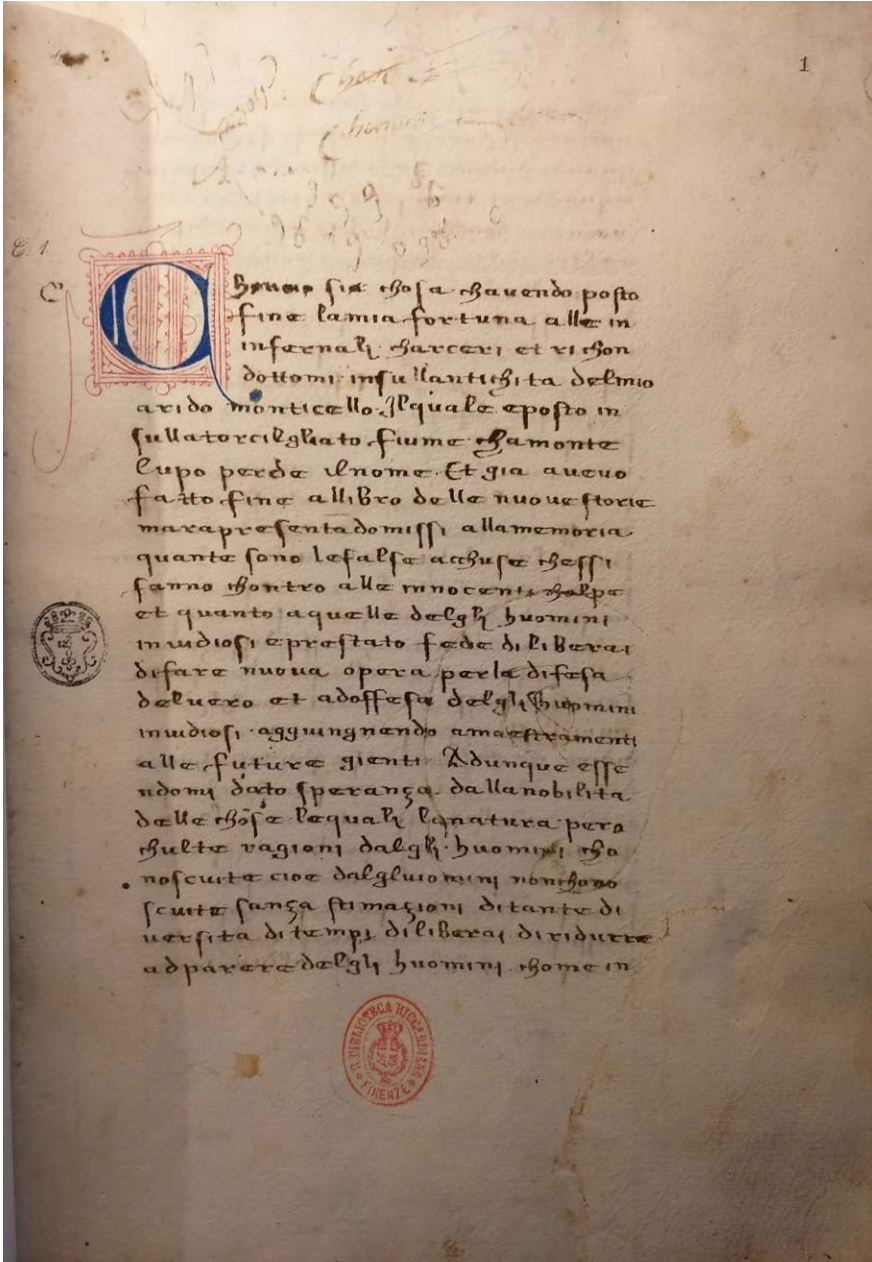 1
C. 1.
C
Chome sia chosa chavendo posto
fine lamia fortuna alle in
infernali charceri et richon
dottomi insullantichita delmio
arido monticello. Ilquale eposto in
sullatorcilgliato fiume chamonte
lupo perde ilnome. Et gia avevo
fatto fine allibro delle nuove storie
marapresentadomissi allamemoria
quante sono lefalse acchuse chessi
fanno chontro alle innocenti cholpe
et quanto aquelle delgli huomini
inuidiosi eprestato fede diliberai
difare nuoua opera perla difesa
deluero et adoffesa delgli huomini
inuidiosi aggiungnendo amaestramenti
alle future gienti Adunque esse
ndomi dato sperança dallanobilita
delle chose lequali lanatura pero
chulte ragioni dalgli huomini cho
nosciute cioe dalgliuomini nonchono
sciute sança stimaçioni ditante di
uersita ditempi diliberai diridurre
adparere delgli huomini chome in
R. BIBLIOTECA RICCARDIANA
FIRENZE